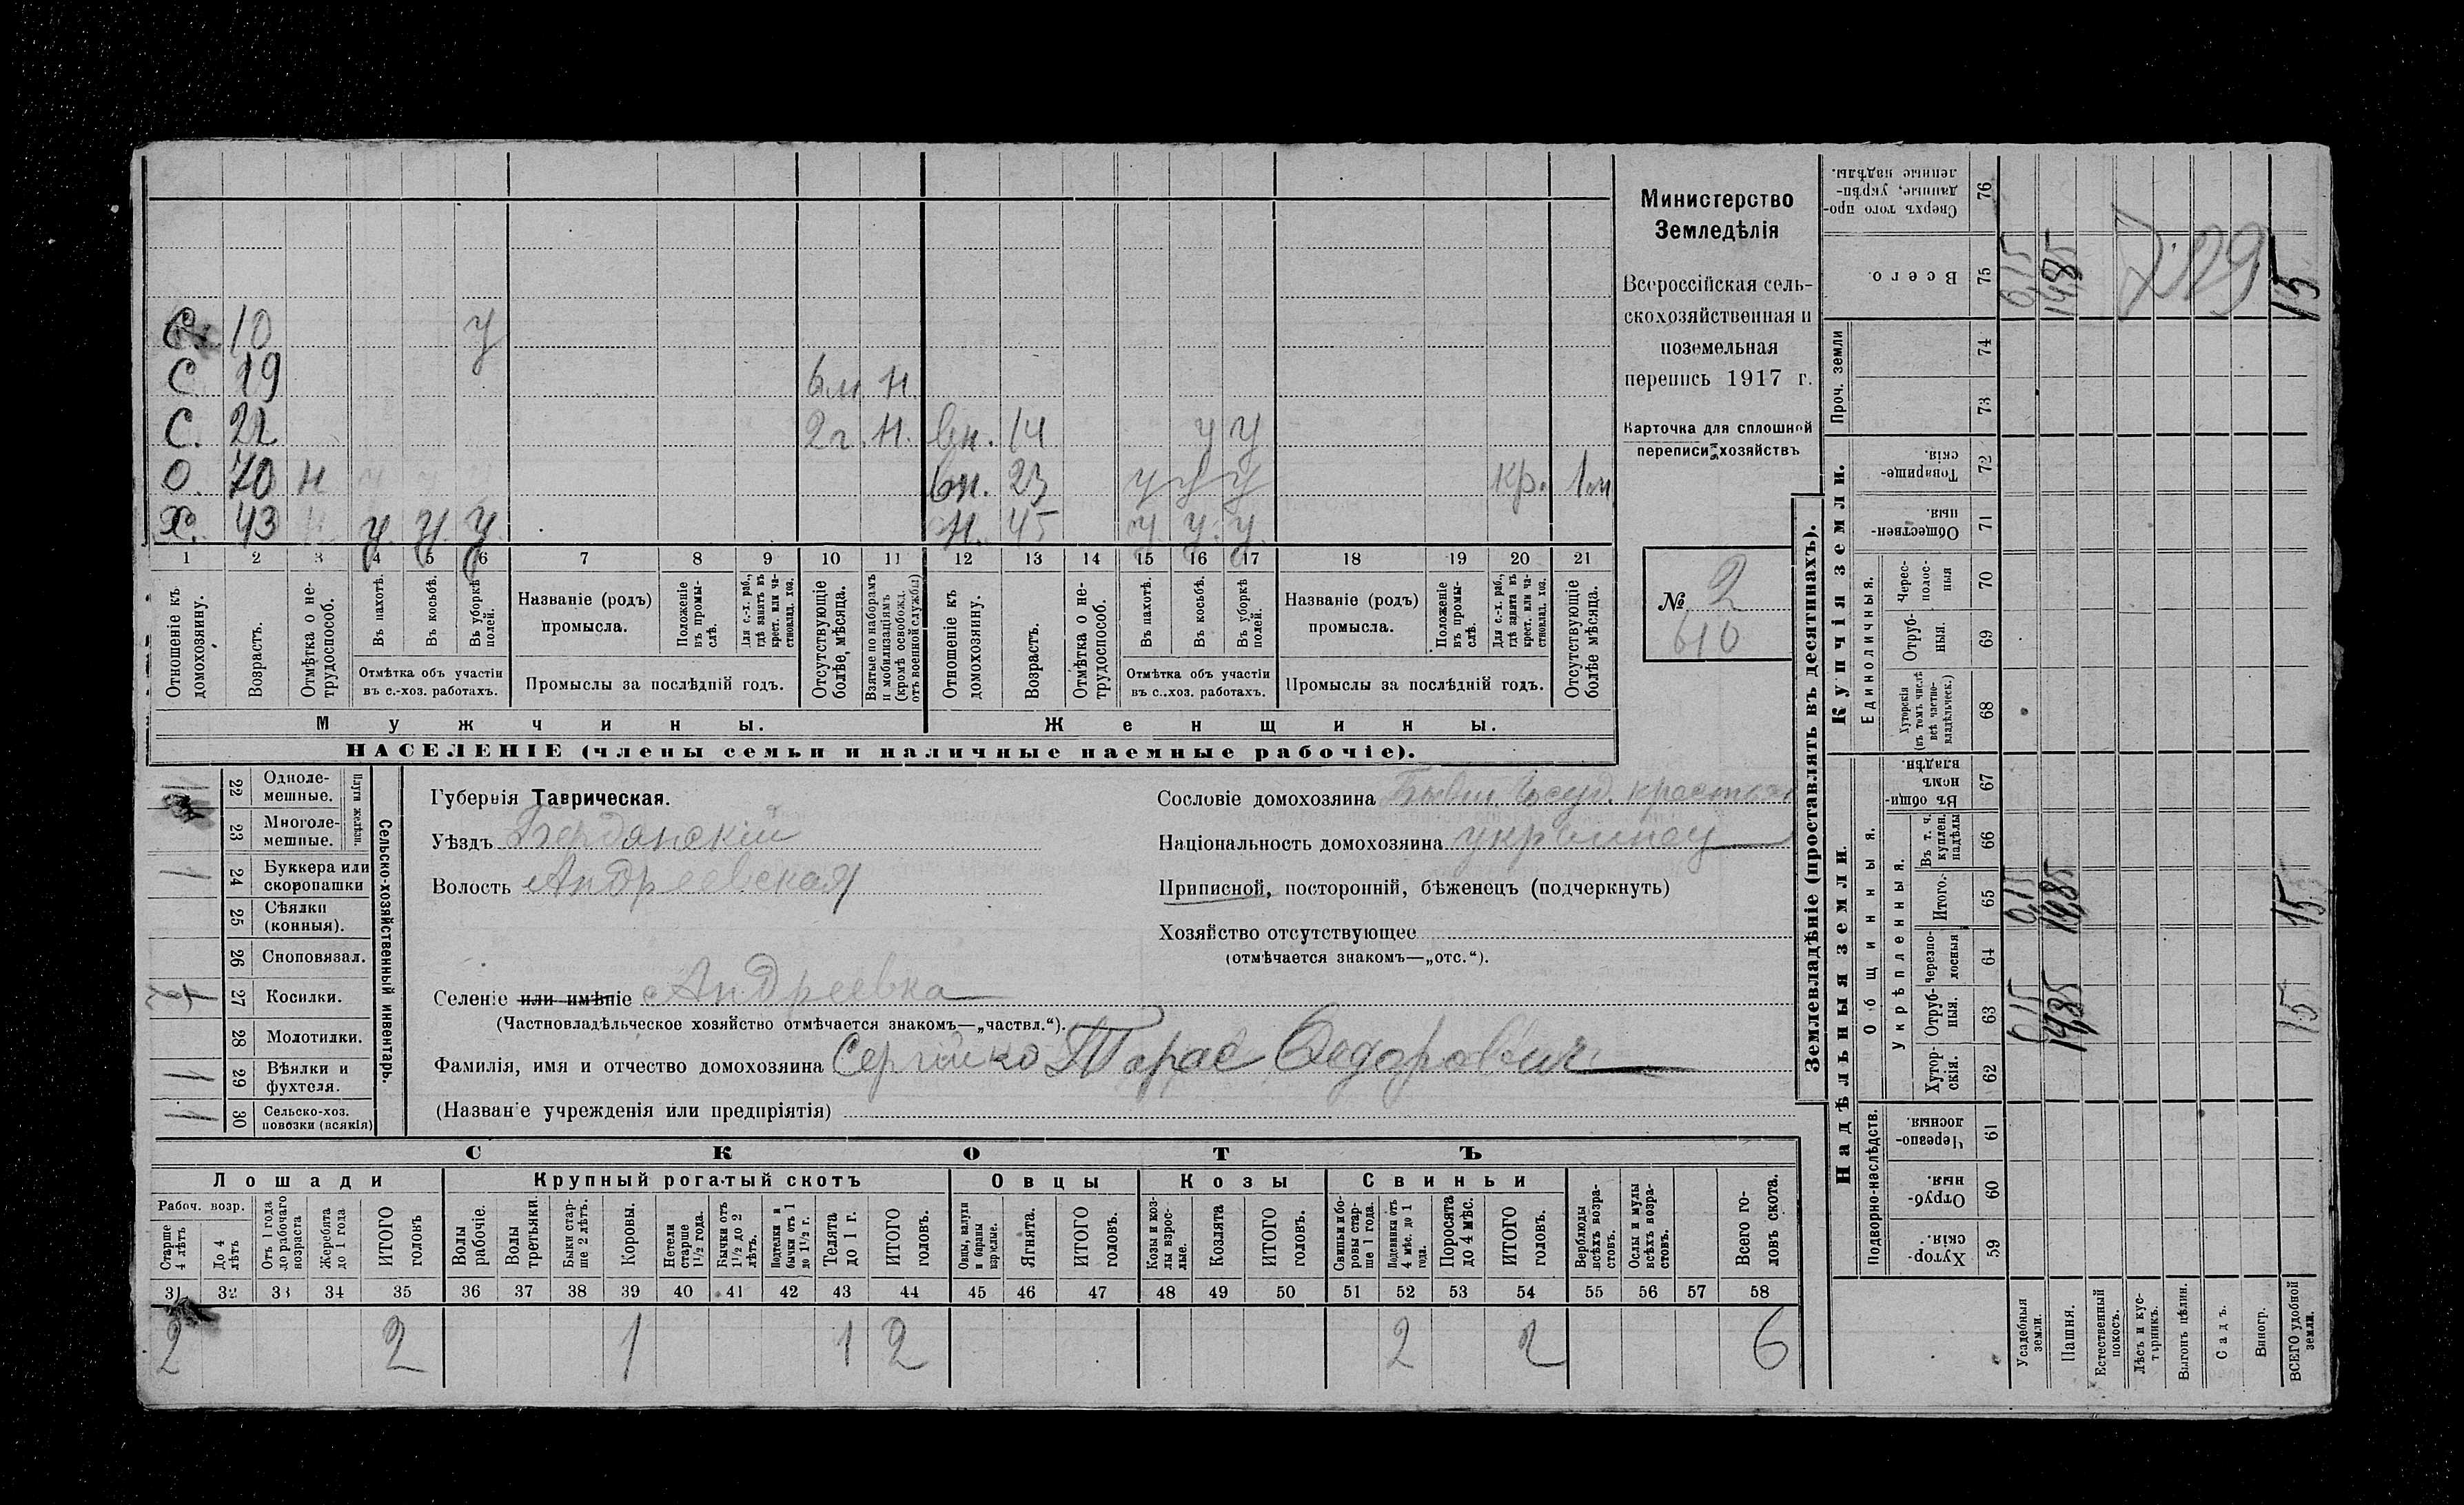 С. 10 у
С 19 6 м Н
С. 22 2 г. Н. вн. 14 у у
О. 70 н вн. 23 у у у кр. 1 м
Х. 43 у. у. у. н. 45 у. у. у.
1 2 3 4 5 6 7 8 9 10 11 12 13 14 15 16 17 18 19 20 21
Отношеніе къ домохозяину.
Возрастъ.
Отмѣтка о не-трудоспособ.
Въ пахотѣ.
Въ косьбѣ.
Въ уборкѣ полей.
Отмѣтка объ участіи
въ с.-хоз. работахъ.
Названіе (родъ)
промысла.
Положеніе въ промы-слѣ.
Для с.-х. раб., гдѣ занятъ въ крест. или ча-стновлад. хоз.
Промыслы за послѣдній годъ.
Отсутствующіе болѣе, мѣсяца.
Взятые по наборамъ и мобилизаціямъ (кромѣ освобожд. отъ военной службы)
Отношеніе къ домохозяину.
Возрастъ.
Отмѣтка о не-трудоспособ.
Въ пахотѣ.
Въ косьбѣ.
Въ уборкѣ полей.
Отмѣтка объ участіи
въ с..хоз. работахъ.
Названіе (родъ)
промысла.
Положеніе въ промы-слѣ.
Для с.-х. раб., гдѣ занята въ крест. или ча-стновлад. хоз.
Промыслы за послѣдній годъ.
Отсутствующіе болѣе мѣсяца.
Мужчины.
Женщины.
НАСЕЛЕНІЕ (члены семьи и наличные наемные рабочіе).
Министерство
Земледѣлія
Всероссійская сель-
скохозяйственная и
поземельная
перепись 1917 г.
Карточка для сплошной
переписи хозяйствъ
№ 2
610
22 Одноле-мешные.
23 Многоле-мешные.
Плуги желѣзн.
24 Буккера или скоропашки 1
25 Сѣялки (конныя).
26 Сноповязал.
27 Косилки.
28 Молотилки.
29 Вѣялки и фухтеля. 1
30 Сельско-хоз. повозки (всякія) 1
Сельско-хозяйственный инвентарь.
Губернія Таврическая.
Уѣздъ Бердянскій
Волость Андреевская
Селеніе или имѣніе Андреевка
(Частновладѣльческое хозяйство отмѣчается знакомъ—„частвл.“).
Фамилія, имя и отчество домохозяина Сергійко Тарас Федорович
(Названіе учрежденія или предпріятія)
Сословіе домохозяина Бывш. Госуд. крестьян
Національность домохозяина украинец
Приписной, посторонній, бѣженецъ (подчеркнуть)
Хозяйство отсутствующее
(отмѣчается знакомъ—„отс.“).
СКОТЪ
Лошади
Крупный рогатый скотъ
Овцы
Козы
Свиньи
Рабоч. возр.
Старше 4 лѣтъ
До 4 лѣтъ
Отъ 1 года до рабочаго возраста
Жеребята до 1 года
ИТОГО головъ
Волы рабочіе.
Волы третьяки.
Быки стар-ше 2 лѣтъ.
Коровы.
Нетели старше 1½ года.
Бычки отъ 1½ до 2 лѣтъ.
Подтелки и бычки отъ 1 до 1½ г.
Телята до 1 г.
ИТОГО головъ.
Овцы, валухи и бараны взрослые.
Ягнята.
ИТОГО головъ.
Козы и коз-лы взрос-лые.
Козлята
ИТОГО головъ.
Свиньи и бо-ровы стар-ше 1 года.
Подсвинки отъ 4 мѣс. до 1 года.
Поросята до 4 мѣс.
ИТОГО головъ.
Верблюды всѣхъ возра-стовъ.
Ослы и мулы всѣхъ возра-стовъ.
Всего го-ловъ скота.
31 32 33 34 35 36 37 38 39 40 41 42 43 44 45 46 47 48 49 50 51 52 53 54 55 56 57 58
2 2 1 1 2 2 2 6
Землевладѣніе (проставлять въ десятинахъ).
Надѣльныя земли.
Купчія земли.
Проч. земли
Подворно-наслѣдств.
Общинныя.
Укрѣпленныя.
Единоличныя.
Хутор-скія. 59
Отруб-ныя. 60
Черезпо-лосныя 61
Хутор-скія. 62
Отруб-ныя. 63 0,15 14,85 15
Черезпо-лосныя 64
Итого. 65 0,15 14,85 15
Въ т. ч. куплен. надѣлы 66
Въ общи-номъ владѣн. 67
Хуторскія (въ томъ числѣ всѣ частно-владѣльческ.) 68
Отруб-ныя. 69
Черес-полос-ныя 70
Обществен-ныя. 71
Товарище-скія. 72
73
74
Всего. 75 0,15 14,85 15
Сверхъ того про-данные, укрѣп-ленные надѣлы. 76
Усадебныя земли.
Пашня.
Естественный покосъ.
Лѣсъ и кус-тарникъ.
Выгонъ цѣлин.
Садъ.
Виногр.
ВСЕГО удобной земли.